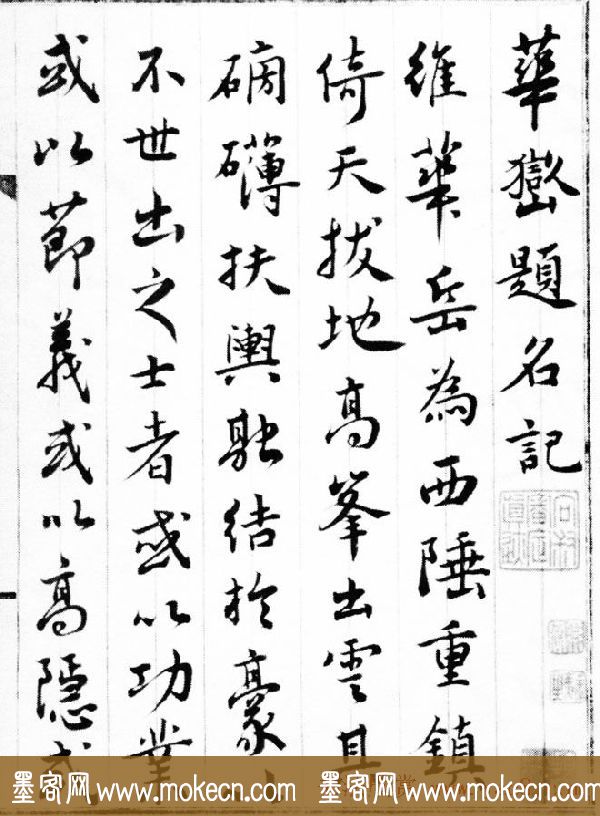 華嶽題名記
維華岳為西陲重鎮
倚天拔地高峯出雲其
磅礴扶輿融結於豪
不世出之士者或以功業
或以節義或以高隱或
墨客网 www.mokecn.com 墨客网 www.mokecn.com